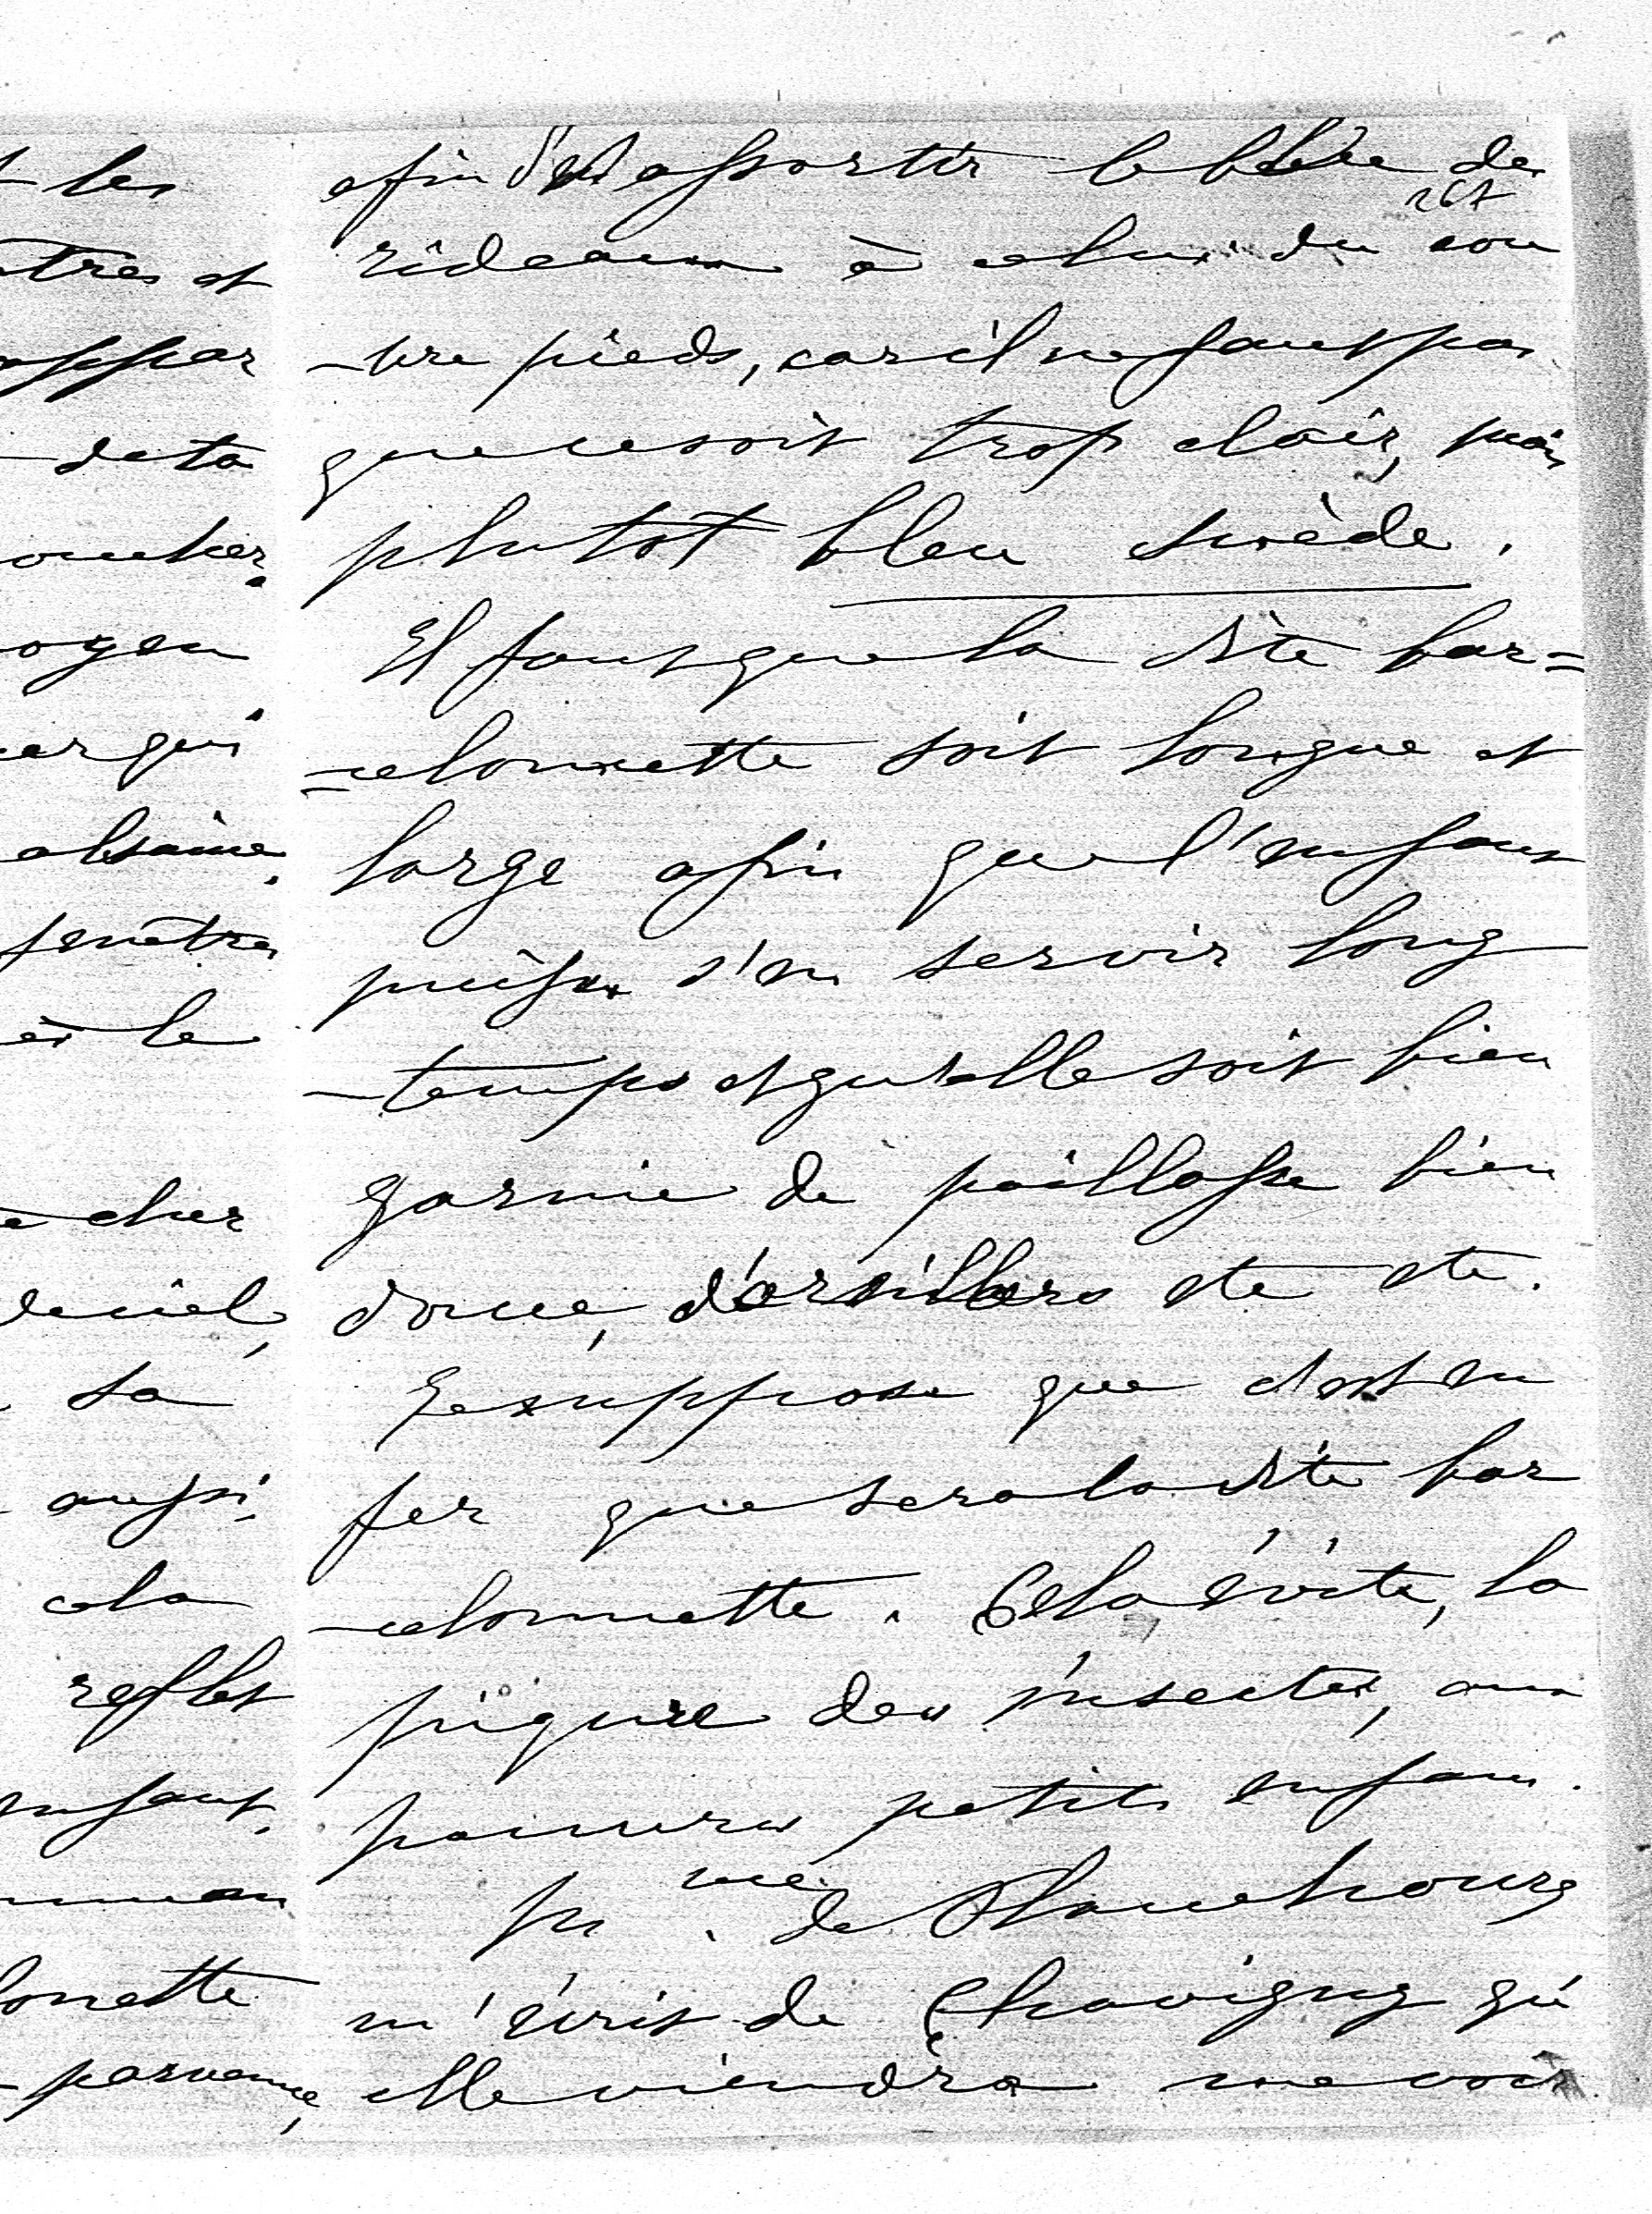 t les
tres et
appar
de ta
oucher.
oyen
er qui
alsaine.
fenêtres
le
cher
de ciel,
sa
aussi
cela
reflet
enfant.
lonette
parvenue,
afin d'assortir le bleu des
267
rideaux à celui du cou
-vre pieds, car il ne faut pas
que ce soit trop clair, mais
plutot bleu suède.
Il faut que la dite bar=
=celonnette soit longue et
large afin que l'enfant
puisse s'en servir long
-temps et qu'elle soit bien
garnie de paillasse bien
douce, d'oreillers etc etc.
Je suppose que c'est en
fer que sera la dite bar
-celonnette. Cela évite, la
piqure des insectes, aux
pauvres petits enfans.
Me de Blanchourg
m'écrit de Chavigny qu'
elle viendra me voir